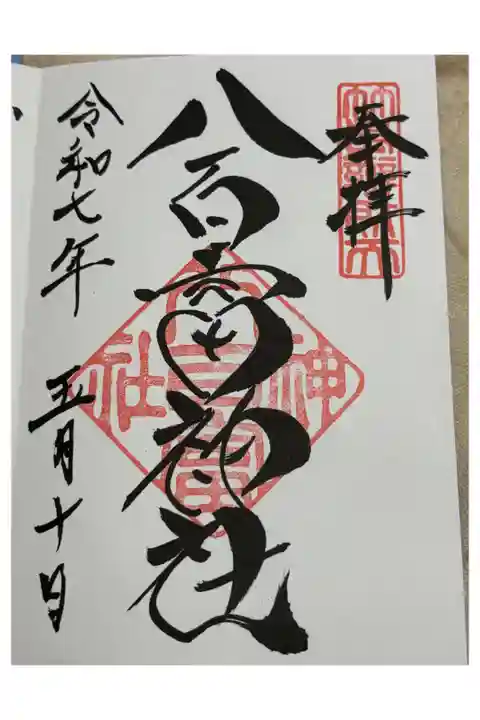 奉拝
八百富神社
八百富神社
令和七年 五月十日